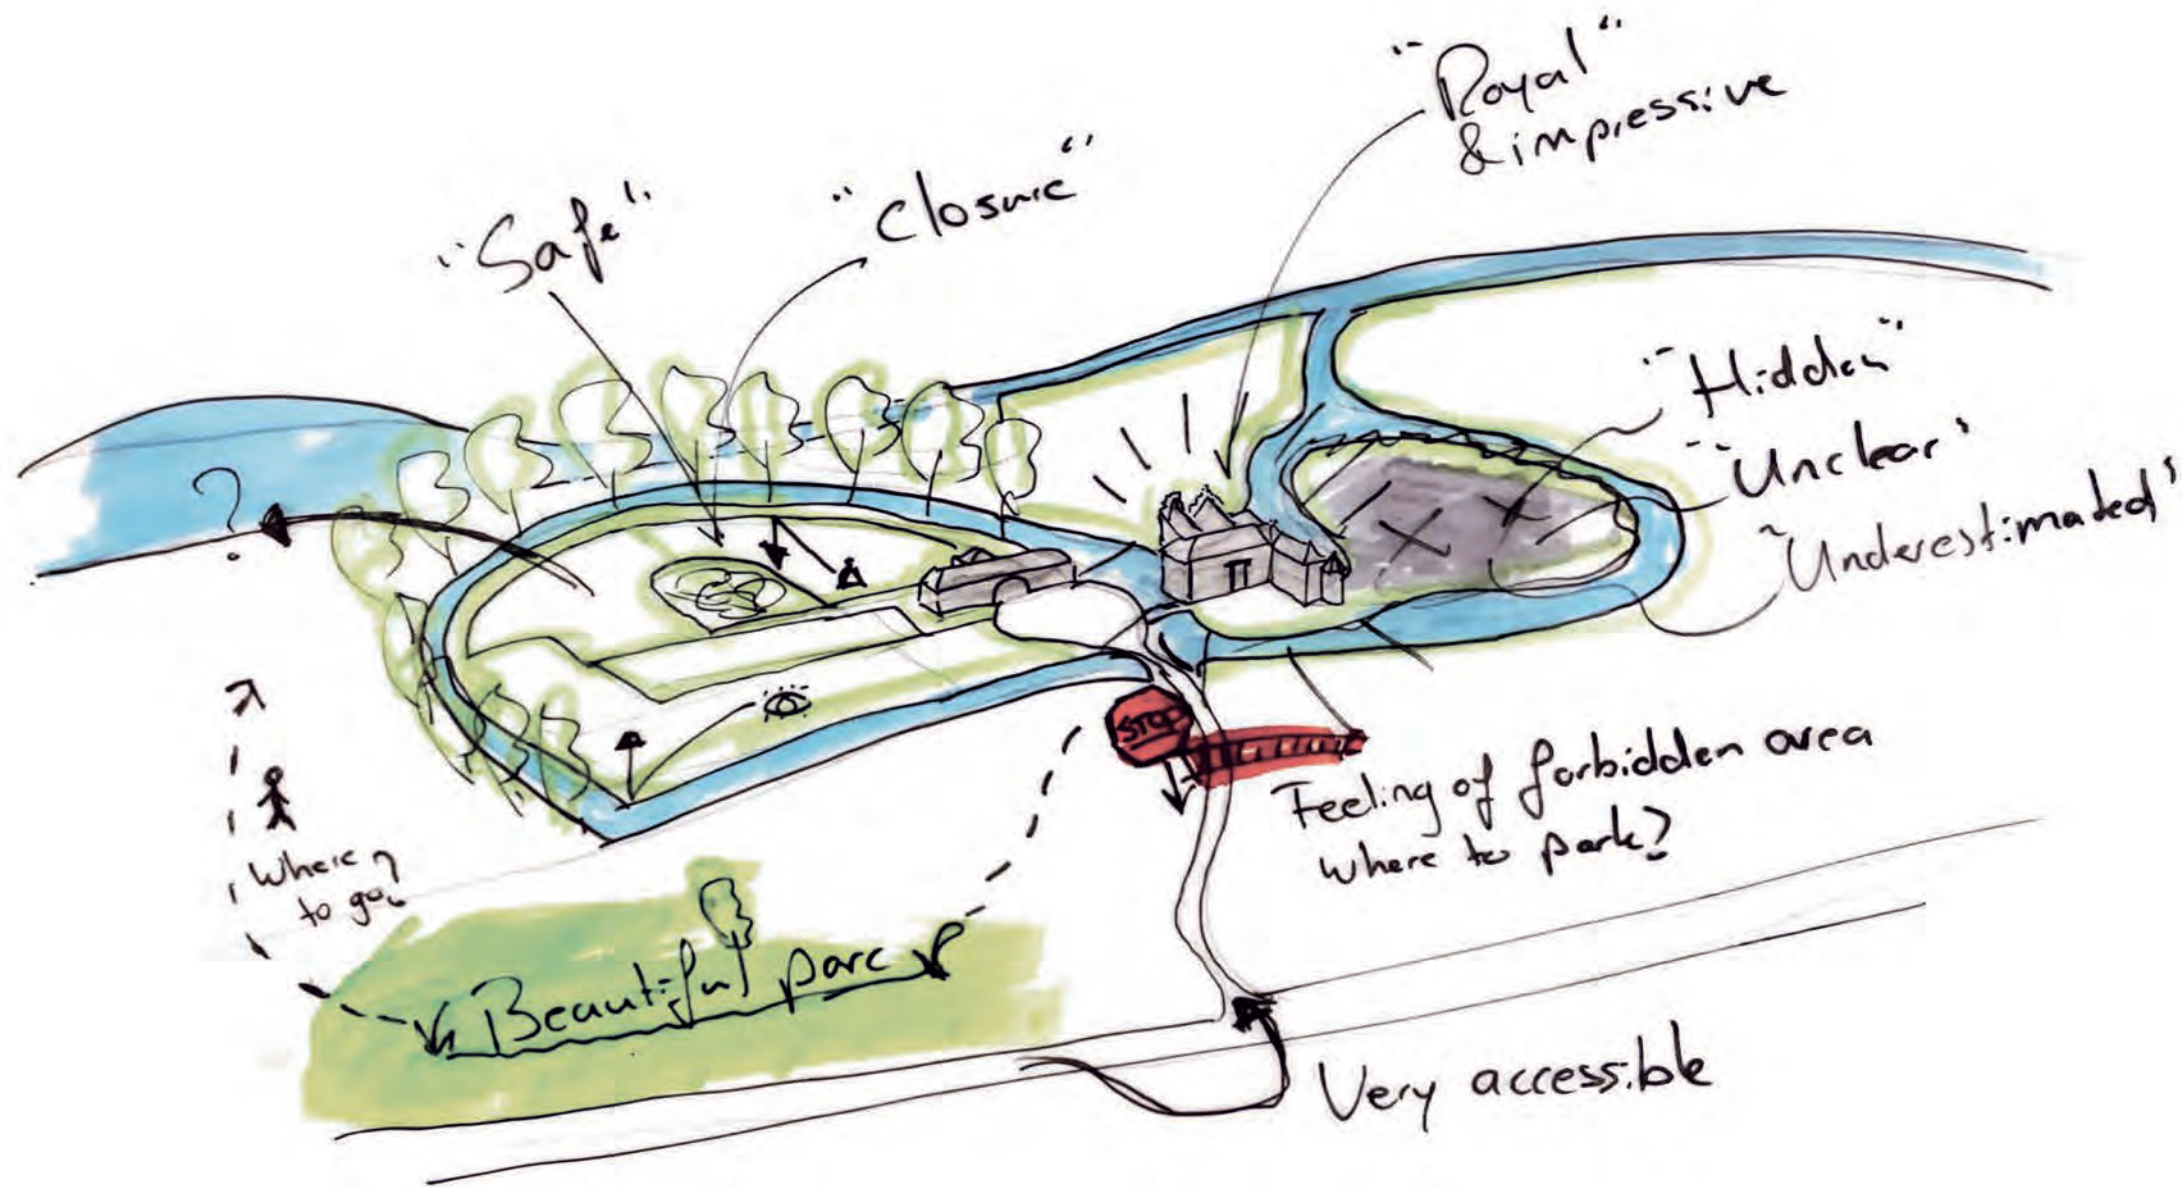 "Royal"
& impressive
"Safe"
"Closure"
"Hidden"
"Unclear"
"Underestimated"
?
STOP
Feeling of forbidden area
where to park?
Where
to go?
Beautiful parc
Very accessible